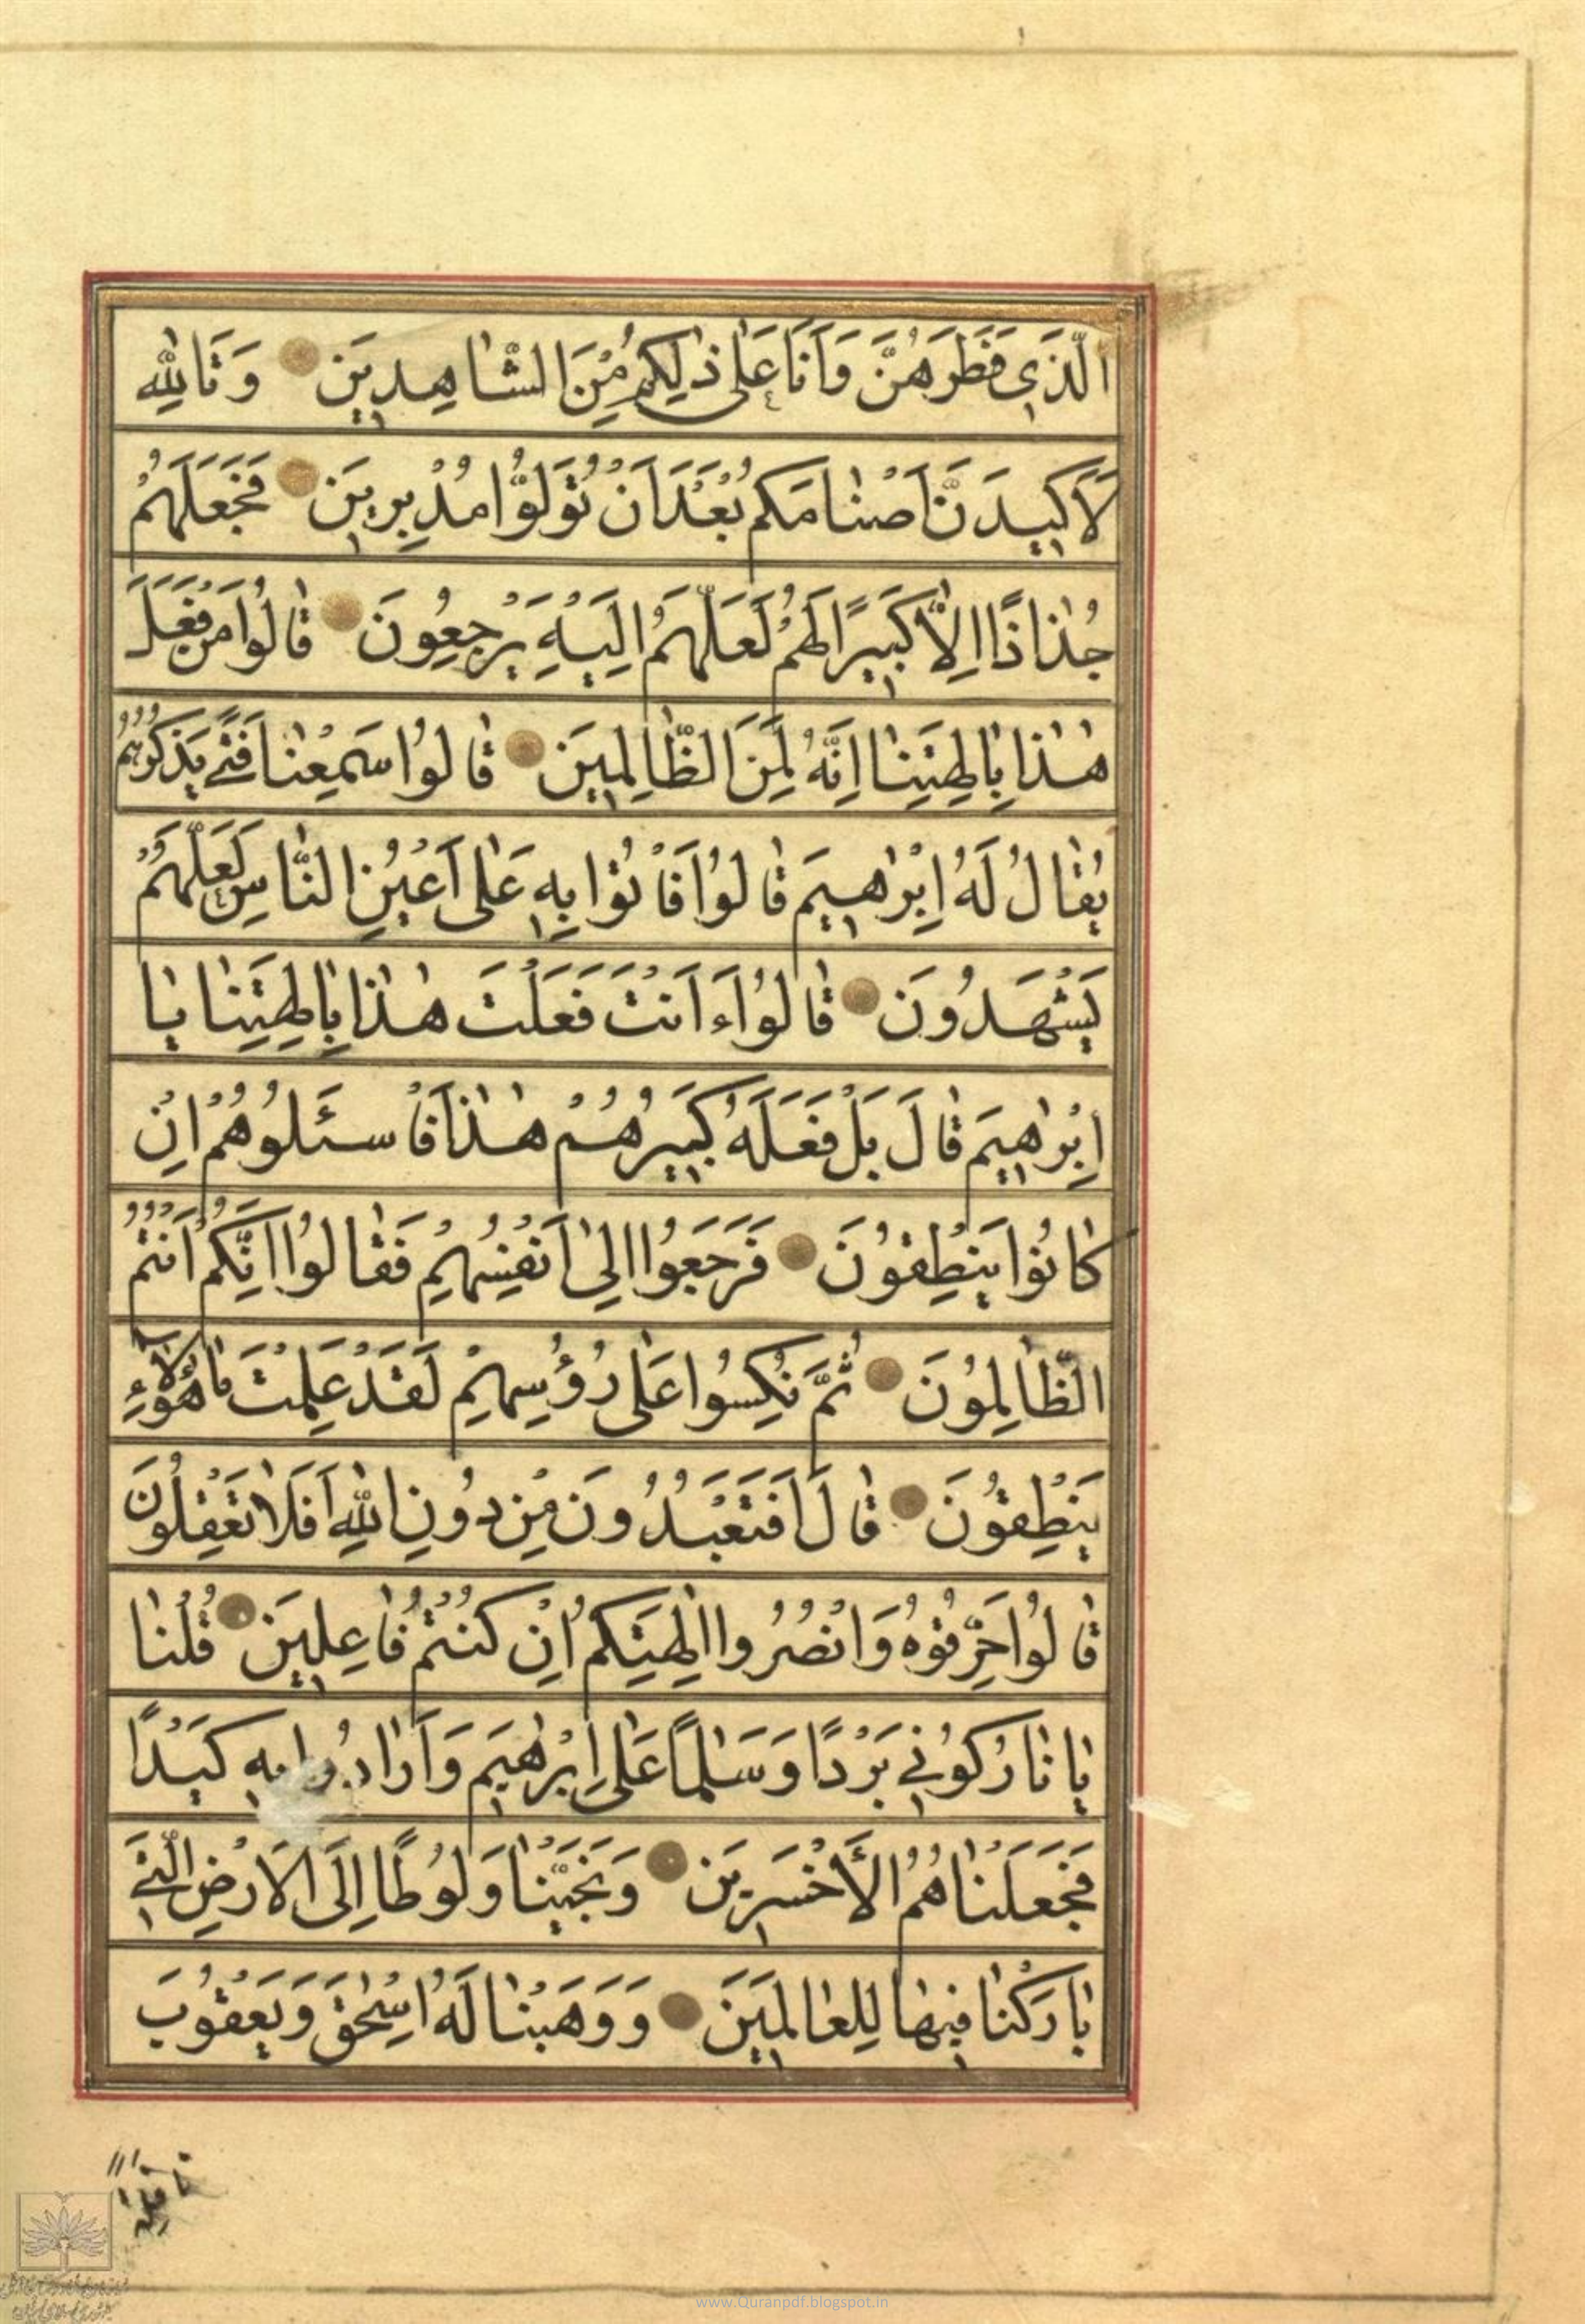 الَّذِي فَطَرَهُنَّ وَاَنَا عَلٰى ذٰلِكُمْ مِنَ الشَّاهِدِينَ وَتَاللّٰهِ
لَاَكِيدَنَّ اَصْنَامَكُمْ بَعْدَ اَنْ تُوَلُّوا مُدْبِرِينَ فَجَعَلَهُمْ
جُذَاذًا اِلَّا كَبِيرًا لَهُمْ لَعَلَّهُمْ اِلَيْهِ يَرْجِعُونَ قَالُوا مَنْ فَعَلَ
هٰذَا بِاٰلِهَتِنَا اِنَّهُ لَمِنَ الظَّالِمِينَ قَالُوا سَمِعْنَا فَتًى يَذْكُرُهُمْ
يُقَالُ لَهُ اِبْرٰهِيمَ قَالُوا فَاْتُوا بِهِ عَلٰى اَعْيُنِ النَّاسِ لَعَلَّهُمْ
يَشْهَدُونَ قَالُوا ءَاَنْتَ فَعَلْتَ هٰذَا بِاٰلِهَتِنَا يَا
اِبْرٰهِيمَ قَالَ بَلْ فَعَلَهُ كَبِيرُهُمْ هٰذَا فَاسْئَلُوهُمْ اِنْ
كَانُوا يَنْطِقُونَ فَرَجَعُوا اِلٰى اَنْفُسِهِمْ فَقَالُوا اِنَّكُمْ اَنْتُمُ
الظَّالِمُونَ ثُمَّ نُكِسُوا عَلٰى رُؤُسِهِمْ لَقَدْ عَلِمْتَ مَا هٰؤُلَاءِ
يَنْطِقُونَ قَالَ اَفَتَعْبُدُونَ مِنْ دُونِ اللّٰهِ اَفَلَا تَعْقِلُونَ
قَالُوا حَرِّقُوهُ وَانْصُرُوا اٰلِهَتَكُمْ اِنْ كُنْتُمْ فَاعِلِينَ قُلْنَا
يَا نَارُ كُونِي بَرْدًا وَسَلٰمًا عَلٰى اِبْرٰهِيمَ وَاَرَادُوا بِهِ كَيْدًا
فَجَعَلْنَاهُمُ الْاَخْسَرِينَ وَنَجَّيْنَاهُ وَلُوطًا اِلَى الْاَرْضِ الَّتِي
بَارَكْنَا فِيهَا لِلْعَالَمِينَ وَوَهَبْنَا لَهُ اِسْحٰقَ وَيَعْقُوبَ
نافلة
www.Quranpdf.blogspot.in